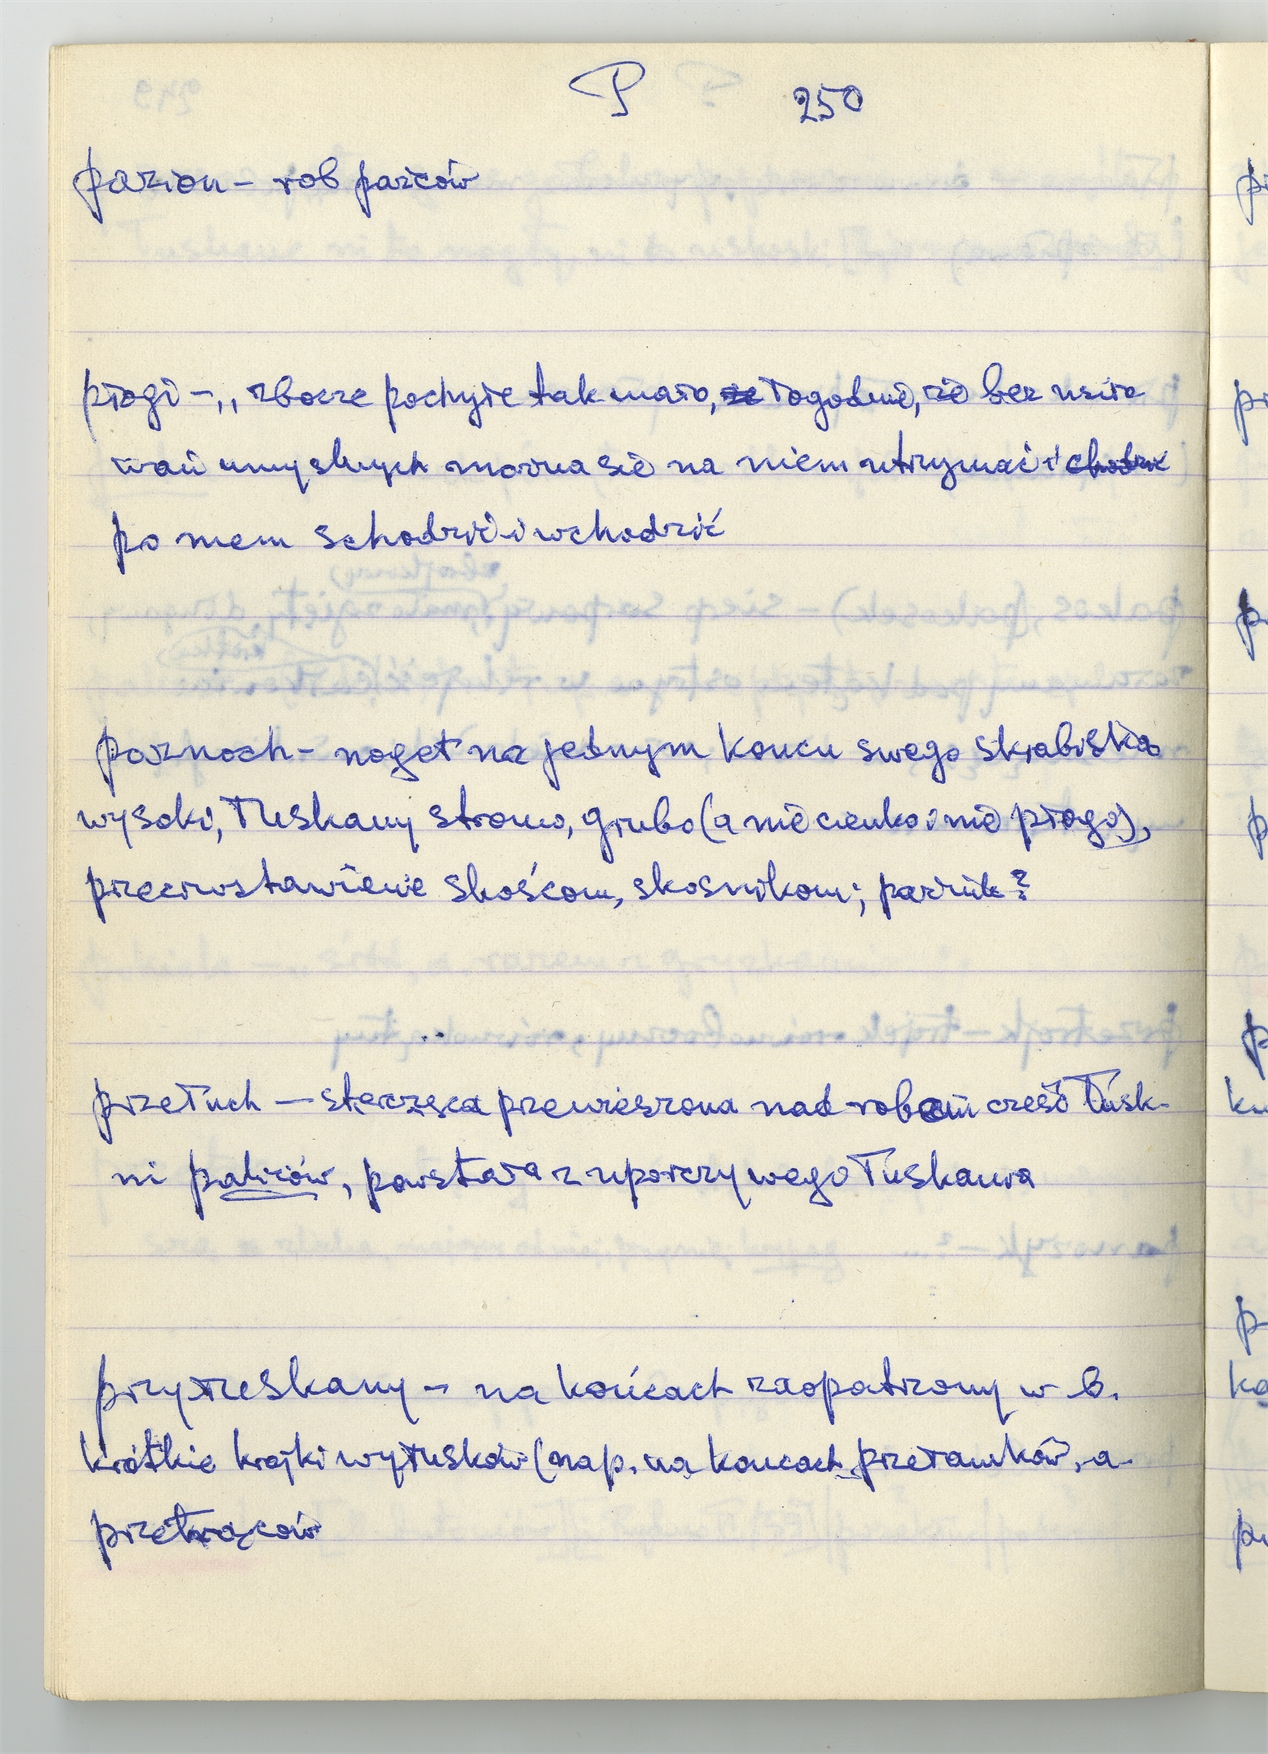 P 250
pazion – rob paźców
płogi – „ zbocze pochyłe tak mało, łogodnie, że bez usiło
wań umyslnych można się na niem utrzymać i
po niem schodzić i wchodzić
paznoch – noget na jednym koncu swego skrabiska
wysoki, łuskany stromo, grubo (a nie cienko i nie płogo),
przeciwstawienie skoścom, skosnikom; paźnik?
przełuch – stercząca przewieszona nad robem cześć łusk-
ni , powstała z uporczywego łuskania
przyłuskany – na końcach zaopatrzony w b.
krótkie krojki wyłusków (nap. na koncach przeramków, a
przetrącow